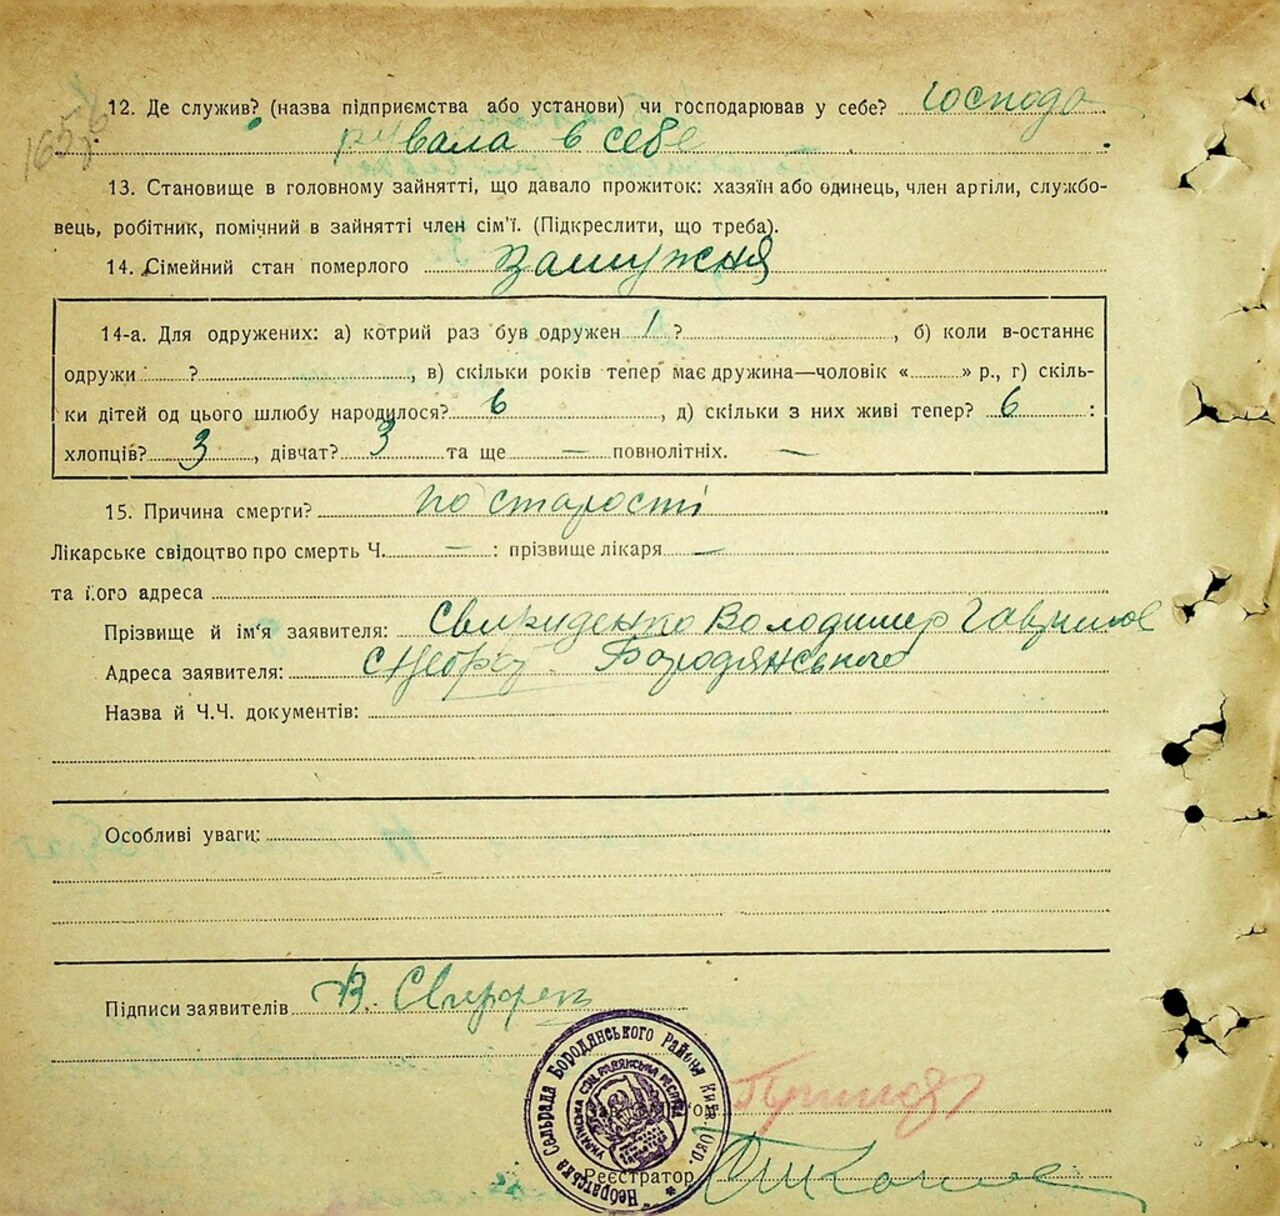 165
12. Де служив? (назва підприємства або установи) чи господарював у себе? Господа
рювала в себе
13. Становище в головному зайнятті, що давало прожиток: хазяїн або одинець, член артіли, службо-
вець, робітник, помічний в зайнятті член сім'ї. (Підкреслити, що треба).
14. Сімейний стан померлого замужня
14-а. Для одружених: а) котрий раз був одружен 1 ?, б) коли в-останнє
одружи ?, в) скільки років тепер має дружина—чоловік « » р., г) скіль-
ки дітей од цього шлюбу народилося? 6, д) скільки з них живі тепер? 6 :
хлопців? 3, дівчат? 3 та ще — повнолітніх. —
15. Причина смерти? по старості
Лікарське свідоцтво про смерть Ч. — : прізвище лікаря —
та його адреса
Прізвище й ім'я заявителя: Свириденко Володимир Гаврилов
Адреса заявителя: Бородянського
Назва й Ч.Ч. документів:
Особливі уваги:
Підписи заявителів В. Свириден
Небратська Сельрада Бородянського Района Київ. Окр.
Українська Соц. Радянська Республ
Реєстратор